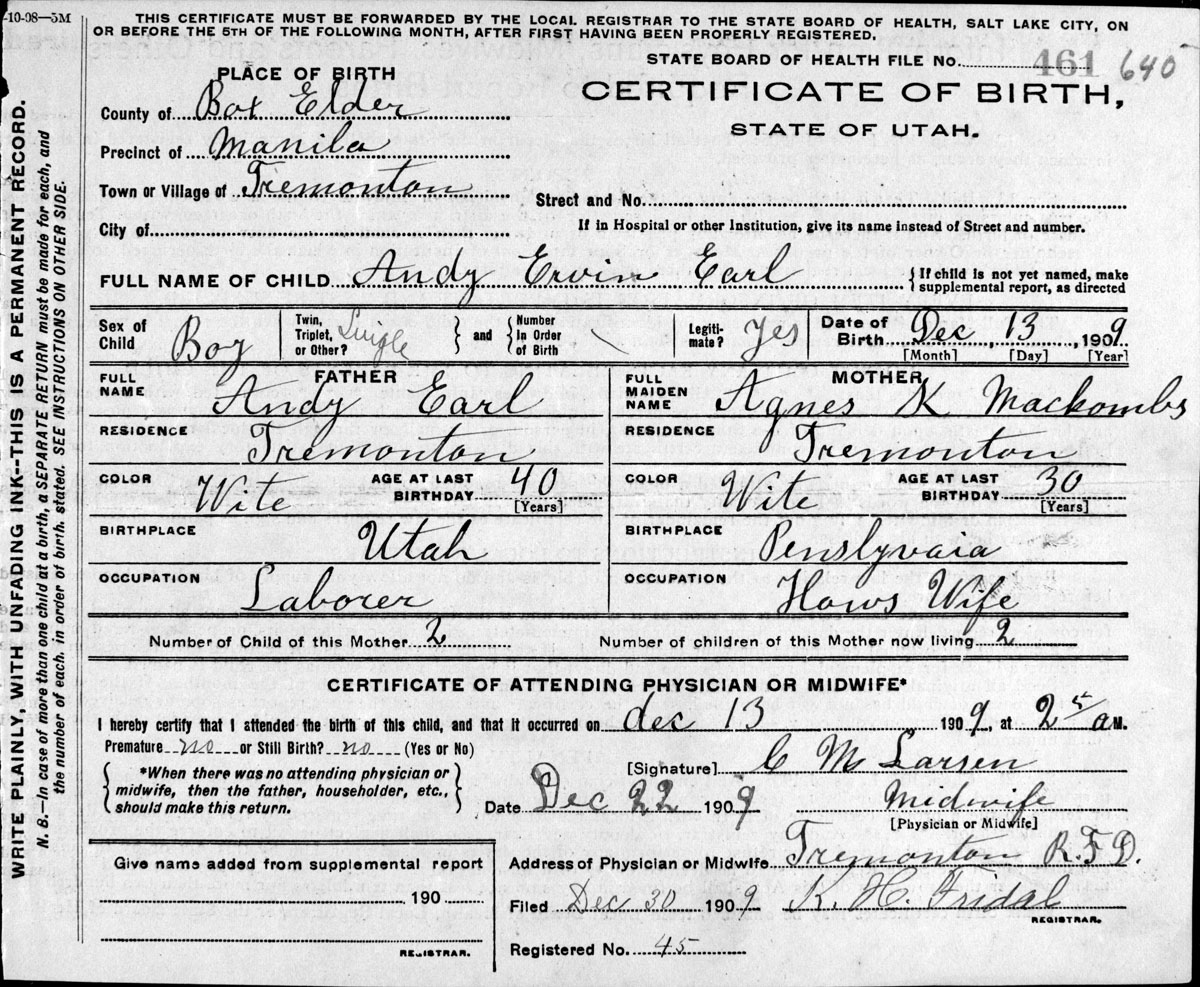 -10-08—5M
THIS CERTIFICATE MUST BE FORWARDED BY THE LOCAL REGISTRAR TO THE STATE BOARD OF HEALTH, SALT LAKE CITY, ON
OR BEFORE THE 5TH OF THE FOLLOWING MONTH, AFTER FIRST HAVING BEEN PROPERLY REGISTERED.
STATE BOARD OF HEALTH FILE No. 461 640
PLACE OF BIRTH
CERTIFICATE OF BIRTH,
STATE OF UTAH.
County of Box Elder
Precinct of Manila
Town or Village of Tremonton
Street and No.
City of
If in Hospital or other Institution, give its name instead of Street and number.
FULL NAME OF CHILD Andy Ervin Earl { If child is not yet named, make
supplemental report, as directed
Sex of Child Boy
Twin, Triplet, or Other? Single } and { Number In Order of Birth
Legiti-mate? Yes
Date of Birth Dec, 13, 1909
[Month] [Day] [Year]
FATHER
FULL NAME Andy Earl
RESIDENCE Tremonton
COLOR Wite AGE AT LAST BIRTHDAY 40
[Years]
BIRTHPLACE Utah
OCCUPATION Laborer
MOTHER
FULL MAIDEN NAME Agnes K Mackombs
RESIDENCE Tremonton
COLOR Wite AGE AT LAST BIRTHDAY 30
[Years]
BIRTHPLACE Penslyvaia
OCCUPATION Hows Wife
Number of Child of this Mother 2 Number of children of this Mother now living 2
CERTIFICATE OF ATTENDING PHYSICIAN OR MIDWIFE*
I hereby certify that I attended the birth of this child, and that it occurred on dec 13 1909, at 2 5 a M.
Premature no or Still Birth? no (Yes or No)
{ *When there was no attending physician or
midwife, then the father, householder, etc.,
should make this return. }
[Signature] C M Larsen
Date Dec 22 1909 Midwife
[Physician or Midwife]
Give name added from supplemental report
190
REGISTRAR.
Address of Physician or Midwife Tremonton R.F.D.
Filed Dec 30 1909 K. H. Fridal
REGISTRAR.
Registered No. 45
WRITE PLAINLY, WITH UNFADING INK--THIS IS A PERMANENT RECORD.
N. B.—In case of more than one child at a birth, a SEPARATE RETURN must be made for each, and
the number of each, in order of birth, stated. SEE INSTRUCTIONS ON OTHER SIDE.